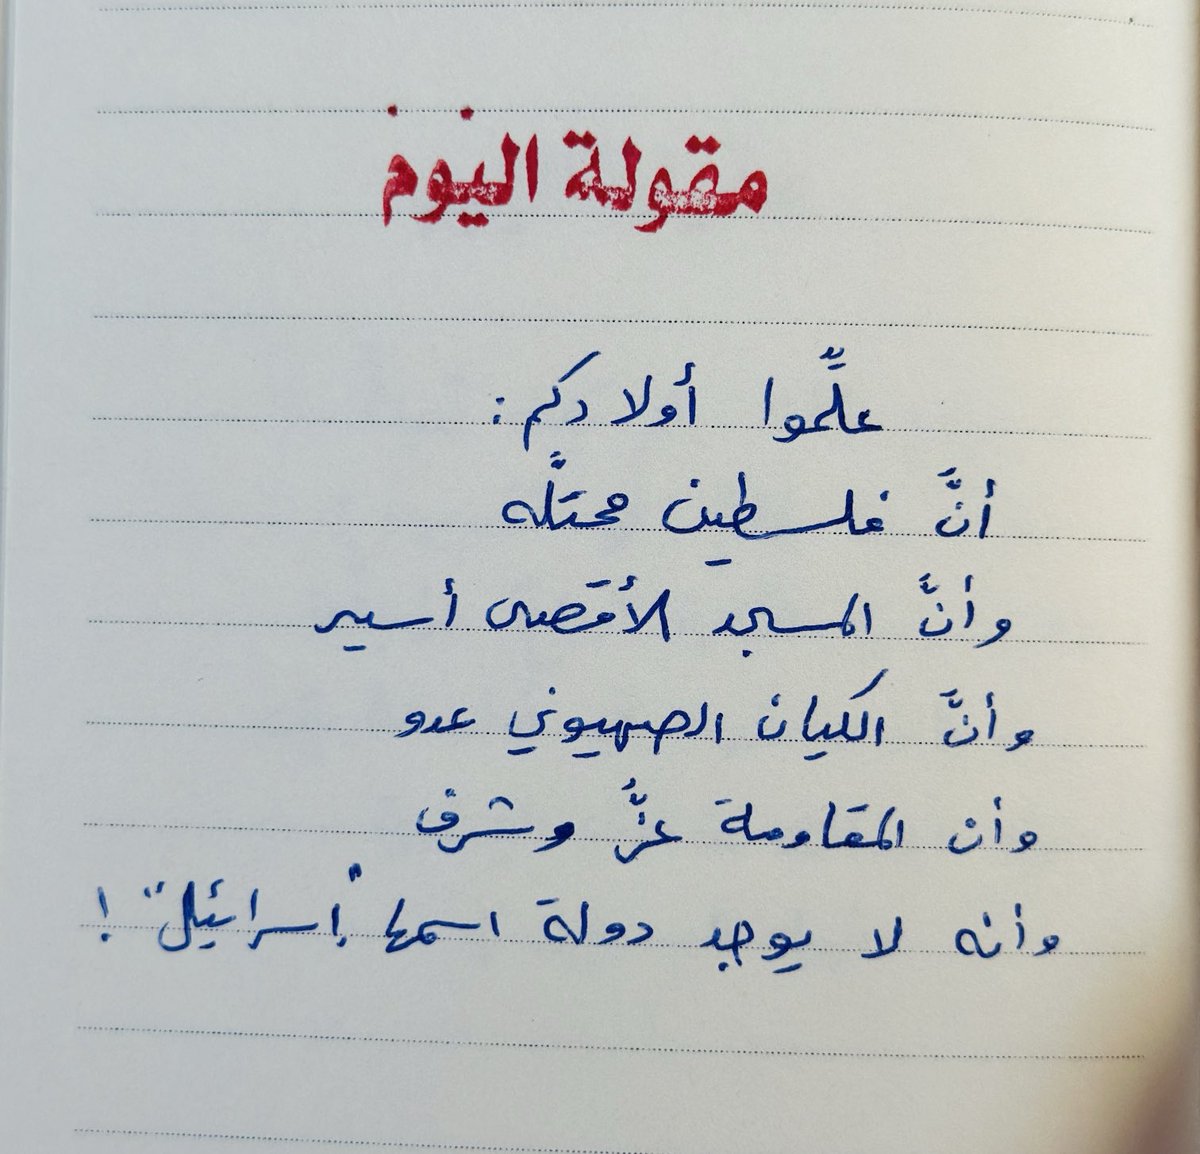 مقولة اليوم
علِّموا أولادكم:
أنَّ فلسطين محتلَّه
وأنَّ المسجد الأقصى أسير
وأنَّ الكيان الصهيوني عدو
وأن المقاومة عزٌّ وشرف
وأنه لا يوجد دولة اسمها "إسرائيل"!